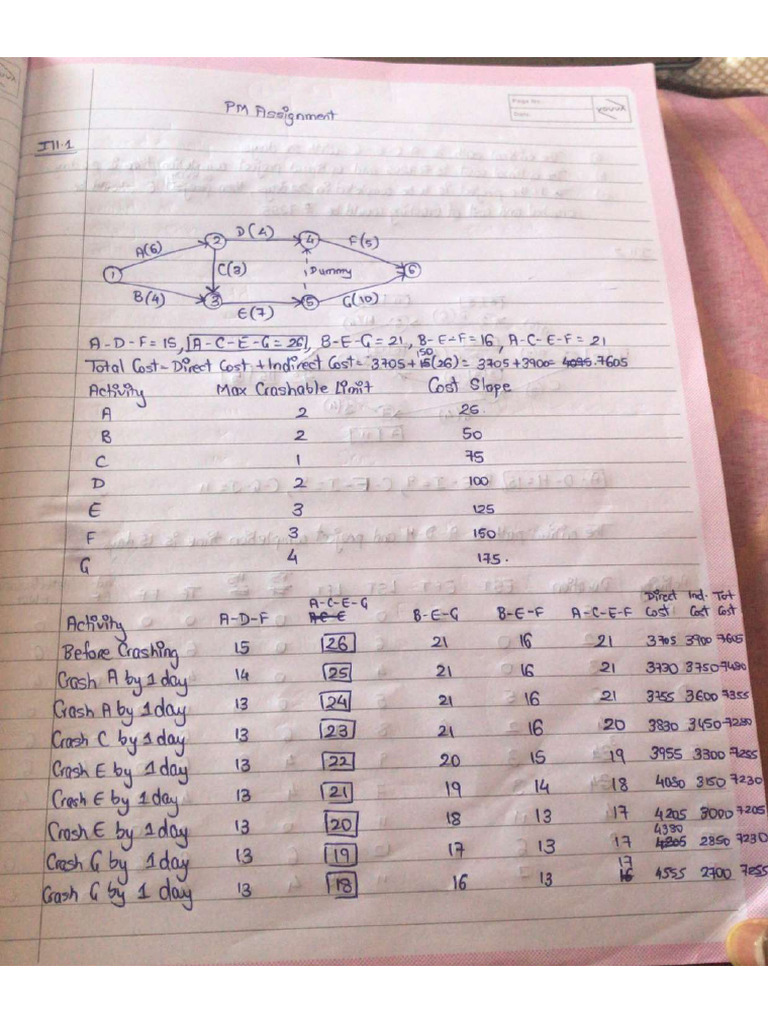 Page No.
Date
PM Assignment
Ill.1
D(4)
A(6)
F(5)
1 2 3 4 5 6
C(3)
Dummy
B(4)
E(7)
G(10)
A-D-F=15, A-C-E-G=26, B-E-G=21, B-E-F=16, A-C-E-F=21
150
Total Cost=Direct Cost+Indirect Cost= 3705+15(26)= 3705+3900= 4095. 7605
Activity Max Crashable Limit Cost Slope
A 2 25
B 2 50
C 1 75
D 2 100
E 3 125
F 3 150
G 4 175.
Direct Ind. Tot
A-C-E-G
Activity A-D-F A-C-E B-E-G B-E-F A-C-E-F Cost Cost Cost
Before Crashing 15 26 21 16 21 3705 3900 7605
Crash A by 1 day 14 25 21 16 21 3730 3750 7480
Crash A by 1 day 13 24 21 16 21 3755 3600 7355
Crash C by 1 day 13 23 21 16 20 3830 3450 7280
Crash E by 1 day 13 22 20 15 19 3955 3300 7255
Crash E by 1 day 13 21 19 14 18 4080 3150 7230
Crash E by 1 day 13 20 18 13 17 4205 3000 7205
4380
Crash G by 1 day 13 19 17 13 17 4205 2850 7230
17
Crash G by 1 day 13 18 16 13 16 4555 2700 7255